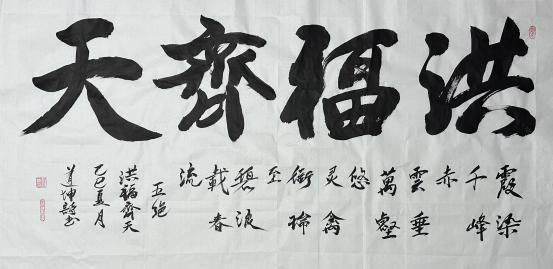 洪福齊天
霞染
千峰
赤
雲垂
萬壑
悠
灵禽
銜瑞
至
碧浪
載春
流
五绝
洪福齊天
乙巳夏月
道坤